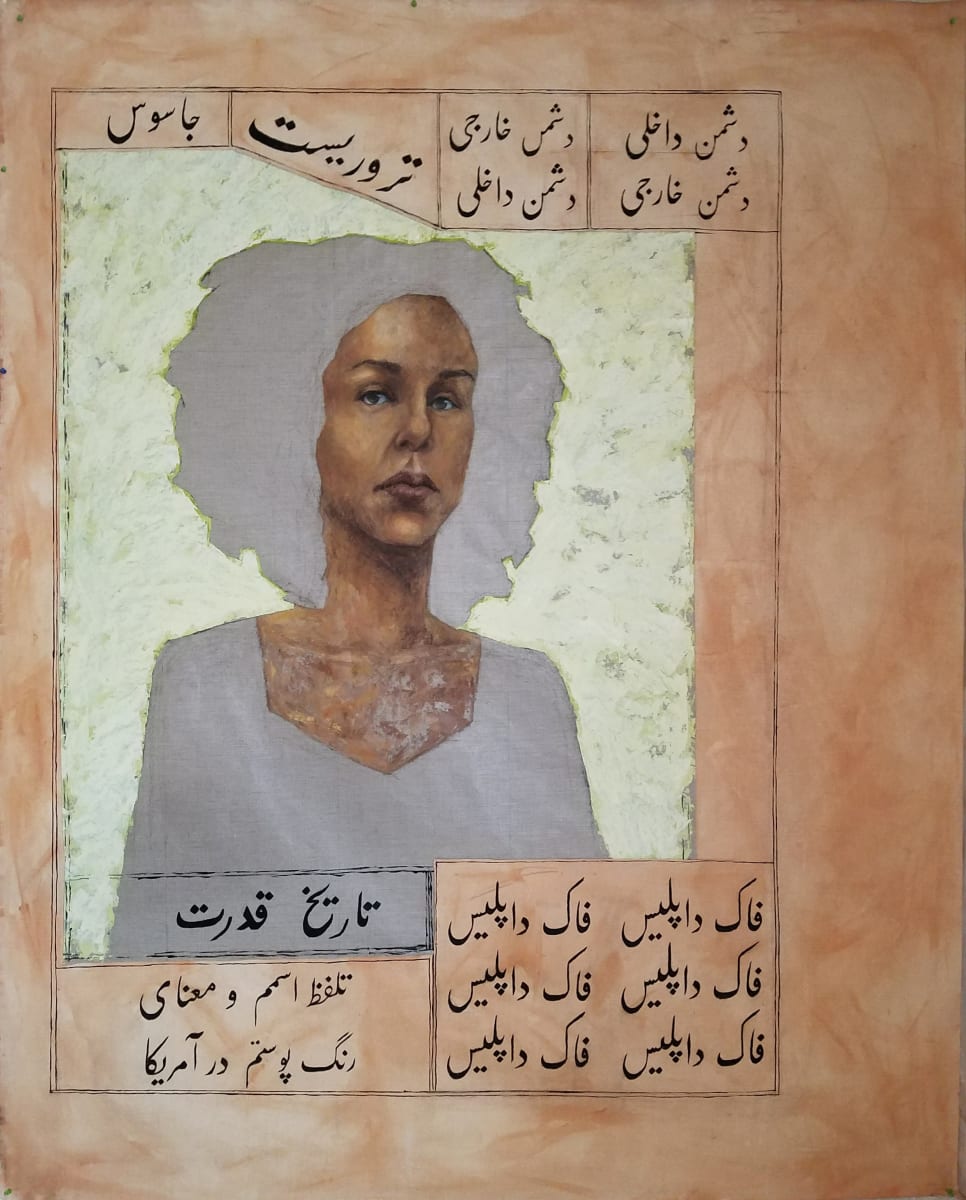 دشمن داخلی
دشمن خارجی
دشمن خارجی
دشمن داخلی
تروریست
جاسوس
فاک داپلیس فاک داپلیس
فاک داپلیس فاک داپلیس
فاک داپلیس فاک داپلیس
تاریخ قدرت
تلفظ اسمم و معنای
رنگ پوستم در آمریکا